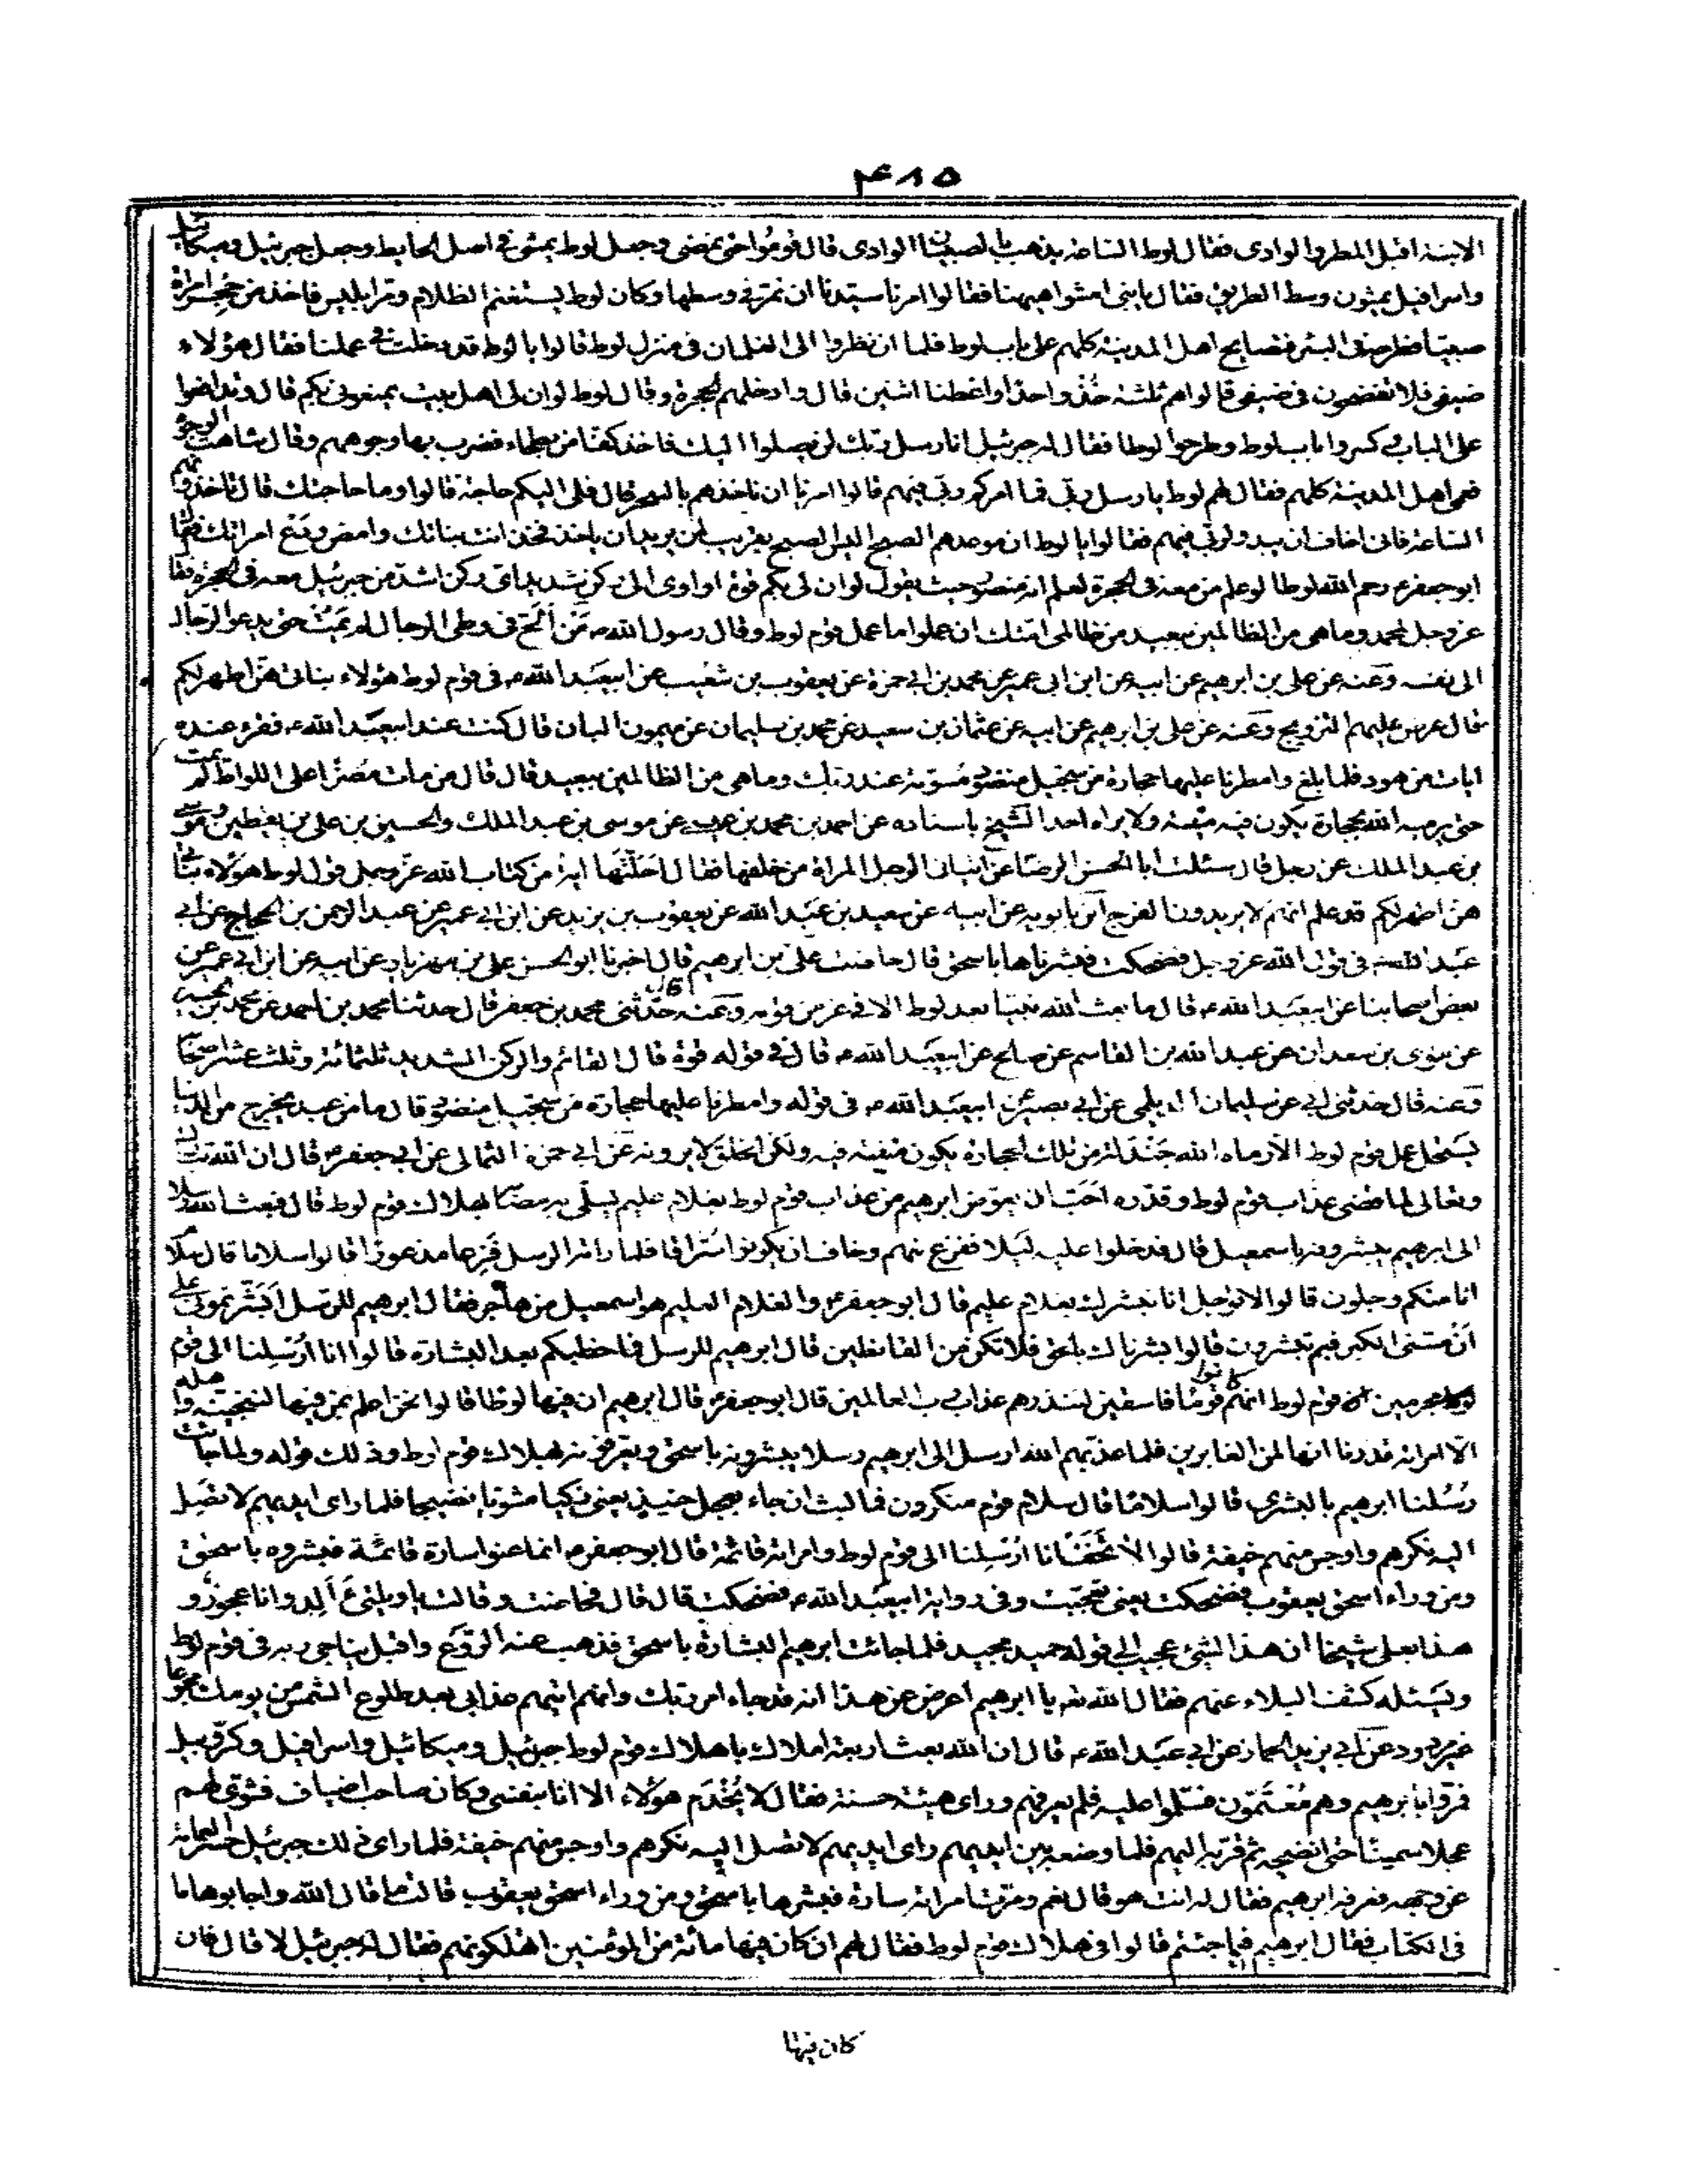 ٤١٥
الابنة اقبل المطر والوادى فقال لوط الساعة يذهب بالصبيان الوادى قال قوموا حتى نمضى وجعل لوط يمشى فى اصل الحايط وجعل جبرئيل وميكائيل
واسرافيل يمشون وسط الطريق فقال يا بنى امشوا هيهنا فقالوا امرنا سيدنا ان نمر فى وسطها وكان لوط يستغنم الظلام ومر ابليس فاخذ من حجر امراة
صبيا فطرحه فى البئر فتصايح اهل المدينة كلهم على باب لوط فلما ان نظروا الى الغلمان فى منزل لوط قالوا يا لوط قد دخلت فى عملنا فقال هؤلاء
ضيفى فلا تفضحون فى ضيفى قالوا هم ثلثة خذ واحدا واعطنا اثنين قال وادخلهم الحجرة وقال لوط لو ان لى اهل بيت يمنعونى منكم قال وتدافعوا
على الباب كسروا باب لوط وطرحوا لوطا فقال له جبرئيل انا رسل ربك لن يصلوا اليك فاخذ كفا من بطحاء فضرب بها وجوههم وقال شاهت الوجوه
فعمى اهل المدينة كلهم فقال لهم لوط يا رسل ربى فما امركم ربى فيهم قالوا امرنا ان ناخذهم بالسحر قال فلى اليكم حاجة قالوا وما حاجتك قال تاخذونهم
الساعة فانى اخاف ان يبدو لربى فيهم فقالوا يا لوط ان موعدهم الصبح اليس الصبح بقريب لمن يريد ان ياخذ فخذ انت بناتك وامض ودع امراتك فقال
ابو جعفر ع رحم الله لوطا لو علم من معه فى الحجرة لعلم انه منصور حيث يقول لو ان لى بكم قوة او اوى الى ركن شديد اى ركن اشد من جبرئيل معه فى الحجرة فقال
عز وجل لمحمد وما هى من الظالمين ببعيد من ظالمى امتك ان عملوا ما عمل قوم لوط وقال رسول الله ص من الح فى وطى الرجال لم يمت حتى يدعو الرجال
الى نفسه وعنه عن على بن ابرهيم عن ابيه عن ابن ابى عمير عن محمد بن ابى حمزة عن يعقوب بن شعيب عن ابيعبد الله ع فى قوم لوط هؤلاء بناتى هن اطهر لكم
قال عرض عليهم التزويج وعنه عن على بن ابرهيم عن ابيه عن عثمان بن سعيد عن محمد بن سليمان عن ميمون البان قال كنت عند ابيعبد الله ع فقرء عنده
ايات من هود فلما بلغ وامطرنا عليها حجارة من سجيل منضود مسومة عند ربك وما هى من الظالمين ببعيد قال قال من مات مصرا على اللواط لم يمت
حتى يرميه الله بحجارة يكون فيه منيته ولا يراه احد الشيخ باسناده عن احمد بن محمد بن عيسى عن موسى بن عبد الملك والحسين بن على بن يقطين وموسى
بن عبد الملك عن رجل قال سئلت ابا الحسن الرضا عن اتيان الرجل المراة من خلفها فقال احلتها اية من كتاب الله عز وجل قول لوط هؤلاء بناتى
هن اطهر لكم قد علم انهم لا يريدون الفرج ابن بابويه عن ابيه عن سعيد بن عبد الله عن يعقوب بن يزيد عن ابن ابى عمير عن عبد الرحمن بن الحجاج عن ابى
عبد الله ع فى قول الله عز وجل فضحكت فبشرناها باسحق قال حاضت على بن ابرهيم قال اخبرنا ابو الحسن على بن مهزيار عن ابيه عن ابن ابى عمير عن
بعض اصحابنا عن ابيعبد الله ع قال ما بعث الله نبيا بعد لوط الا فى عز من قومه وعنه قال حدثنى محمد بن جعفر قال حدثنا محمد بن احمد عن محمد بن الحسين
عن موسى بن سعدان عن عبد الله بن القاسم عن صالح عن ابيعبد الله ع قال فى قوله قوة قال القائم والركن الشديد ثلثمائة وثلث عشر اصحابا
وعنه قال حدثنى ابى عن سليمان الديلمى عن ابى بصير عن ابيعبد الله ع فى قوله وامطرنا عليها حجارة من سجيل منضود قال ما من عبد يخرج من الدنيا
يستحل عمل قوم لوط الا رماه الله جندلة من تلك الحجارة يكون منيته فيه ولكن الخلق لا يرونه عن ابى حمزة الثمالى عن ابى جعفر ع قال ان الله تبارك
وتعالى لما قضى عذاب قوم لوط وقدره احب ان يعوض ابرهيم من عذاب قوم لوط بغلام عليم يسلى به مصابه بهلاك قوم لوط قال فبعث الله رسلا
الى ابرهيم يبشرونه باسمعيل قال فدخلوا عليه ليلا ففزع منهم وخاف ان يكونوا سراقا فلما راته الرسل فزعا مذعورا قالوا سلاما قال سلام
انا منكم وجلون قالوا لا توجل انا نبشرك بغلام عليم قال ابو جعفر ع والغلام العليم هو اسمعيل من هاجر فقال ابرهيم للرسل ابشرتمونى على
ان مسنى الكبر فبم تبشرون قالوا بشرناك بالحق فلا تكن من القانطين قال ابرهيم للرسل فما خطبكم بعد البشارة قالوا انا ارسلنا الى قوم
مجرمين قوم لوط انهم كانوا قوما فاسقين لننذرهم عذاب رب العالمين قال ابو جعفر ع قال ابرهيم ان فيها لوطا قالوا نحن اعلم بمن فيها لننجينه واهله
الا امراته قدرنا انها لمن الغابرين فلما عذبهم الله ارسل الى ابرهيم رسلا يبشرونه باسحق ويعزونه بهلاك قوم لوط وذلك قوله ولما جائت
رسلنا ابرهيم بالبشرى قالوا سلاما قال سلام قوم منكرون فما لبث ان جاء بعجل حنيذ يعنى زكيا مشويا نضيجا فلما راى ايديهم لا تصل
اليه نكرهم واوجس منهم خيفة قالوا لا تخف انا ارسلنا الى قوم لوط وامراته قائمة قال ابو جعفر ع انما عنوا سارة قائمة فبشروه باسحق
ومن وراء اسحق يعقوب فضحكت يعنى تعجبت وفى رواية ابيعبد الله ع فضحكت قال قال فحاضت وقالت يا ويلتى ءالد وانا عجوز و
هذا بعلى شيخا ان هذا لشئ عجيب الى قوله حميد مجيد فلما جائت ابرهيم البشارة باسحق فذهب عنه الروع واقبل يناجى ربه فى قوم لوط
ويسئله كشف البلاء عنهم فقال الله تع يا ابرهيم اعرض عن هذا انه قد جاء امر ربك وانهم اتيهم عذابى بعد طلوع الشمس من يومك محتوما
غير مردود عن ابى يزيد الحمار عن ابى عبد الله ع قال ان الله بعث اربعة املاك باهلاك قوم لوط جبرئيل وميكائيل واسرافيل وكروبيل
فمروا بابرهيم وهم معتمون فسلموا عليه فلم يعرفهم وراى هيئة حسنة فقال لا يخدم هؤلاء الا انا بنفسى وكان صاحب اضياف فشوى لهم
عجلا سمينا حتى انضجه ثم قربه اليهم فلما وضعه بين ايديهم راى ايديهم لا تصل اليه نكرهم واوجس منهم خيفة فلما راى ذلك جبرئيل حسر العمامة
عن وجهه فعرفه ابرهيم فقال له انت هو قال نعم ومرت امراته سارة فبشرها باسحق ومن وراء اسحق يعقوب قالت ما قال الله واجابوها بما
فى الكتاب فقال ابرهيم فيما جئتم قالوا فى هلاك قوم لوط فقال لهم ان كان فيها مائة من المؤمنين اتهلكونهم فقال له جبرئيل لا قال فان
كان فيها